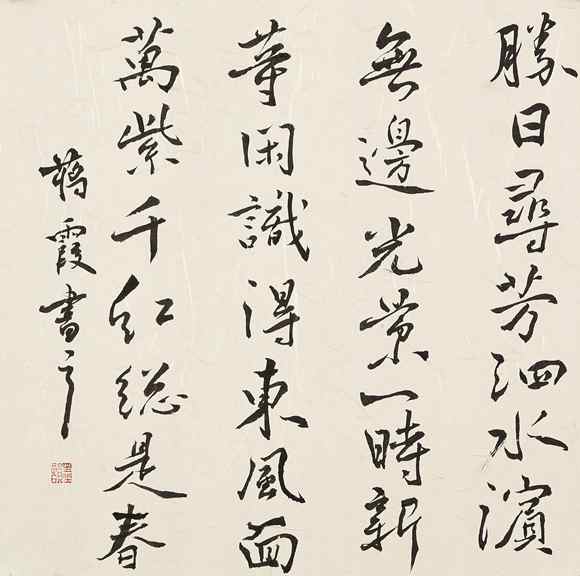 勝日尋芳泗水濱
無邊光景一時新
等閑識得東風面
萬紫千紅総是春
霞書